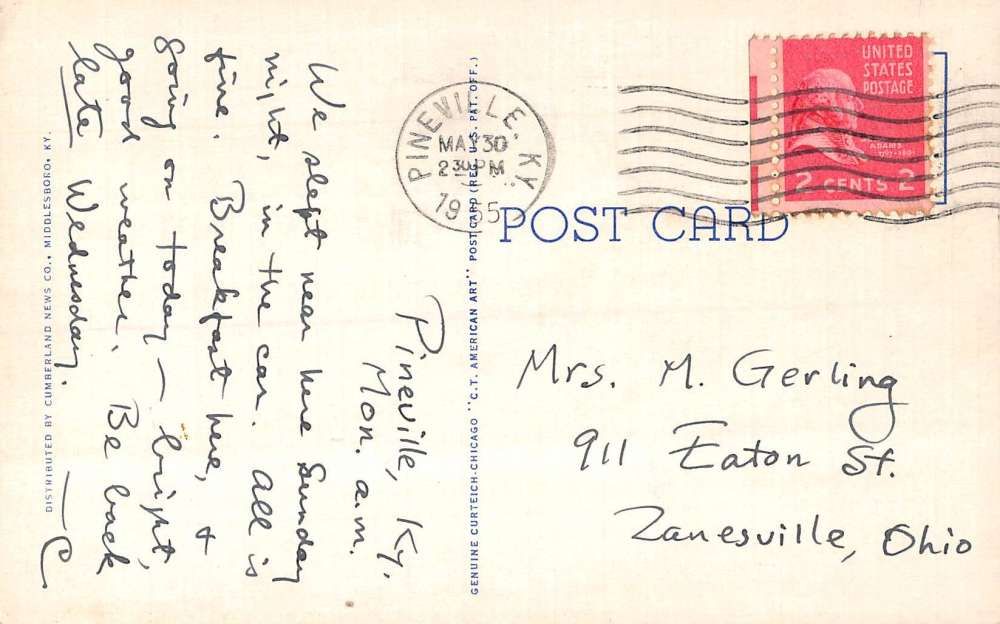 Pineville, Ky.
Mon. a.m.
We slept near here Sunday
night, in the car. All is
fine. Breakfast here, +
going on today — bright,
good weather. Be back
late Wednesday.
— C
DISTRIBUTED BY CUMBERLAND NEWS CO., MIDDLESBORO, KY.
GENUINE CURTEICH-CHICAGO "C.T. AMERICAN ART" POST CARD (REG. U.S. PAT. OFF.)
PINEVILLE KY.
MAY 30
230 PM
1955
UNITED
STATES
POSTAGE
ADAMS
2 CENTS 2
POST CARD
Mrs. M. Gerling
911 Eaton St.
Zanesville, Ohio